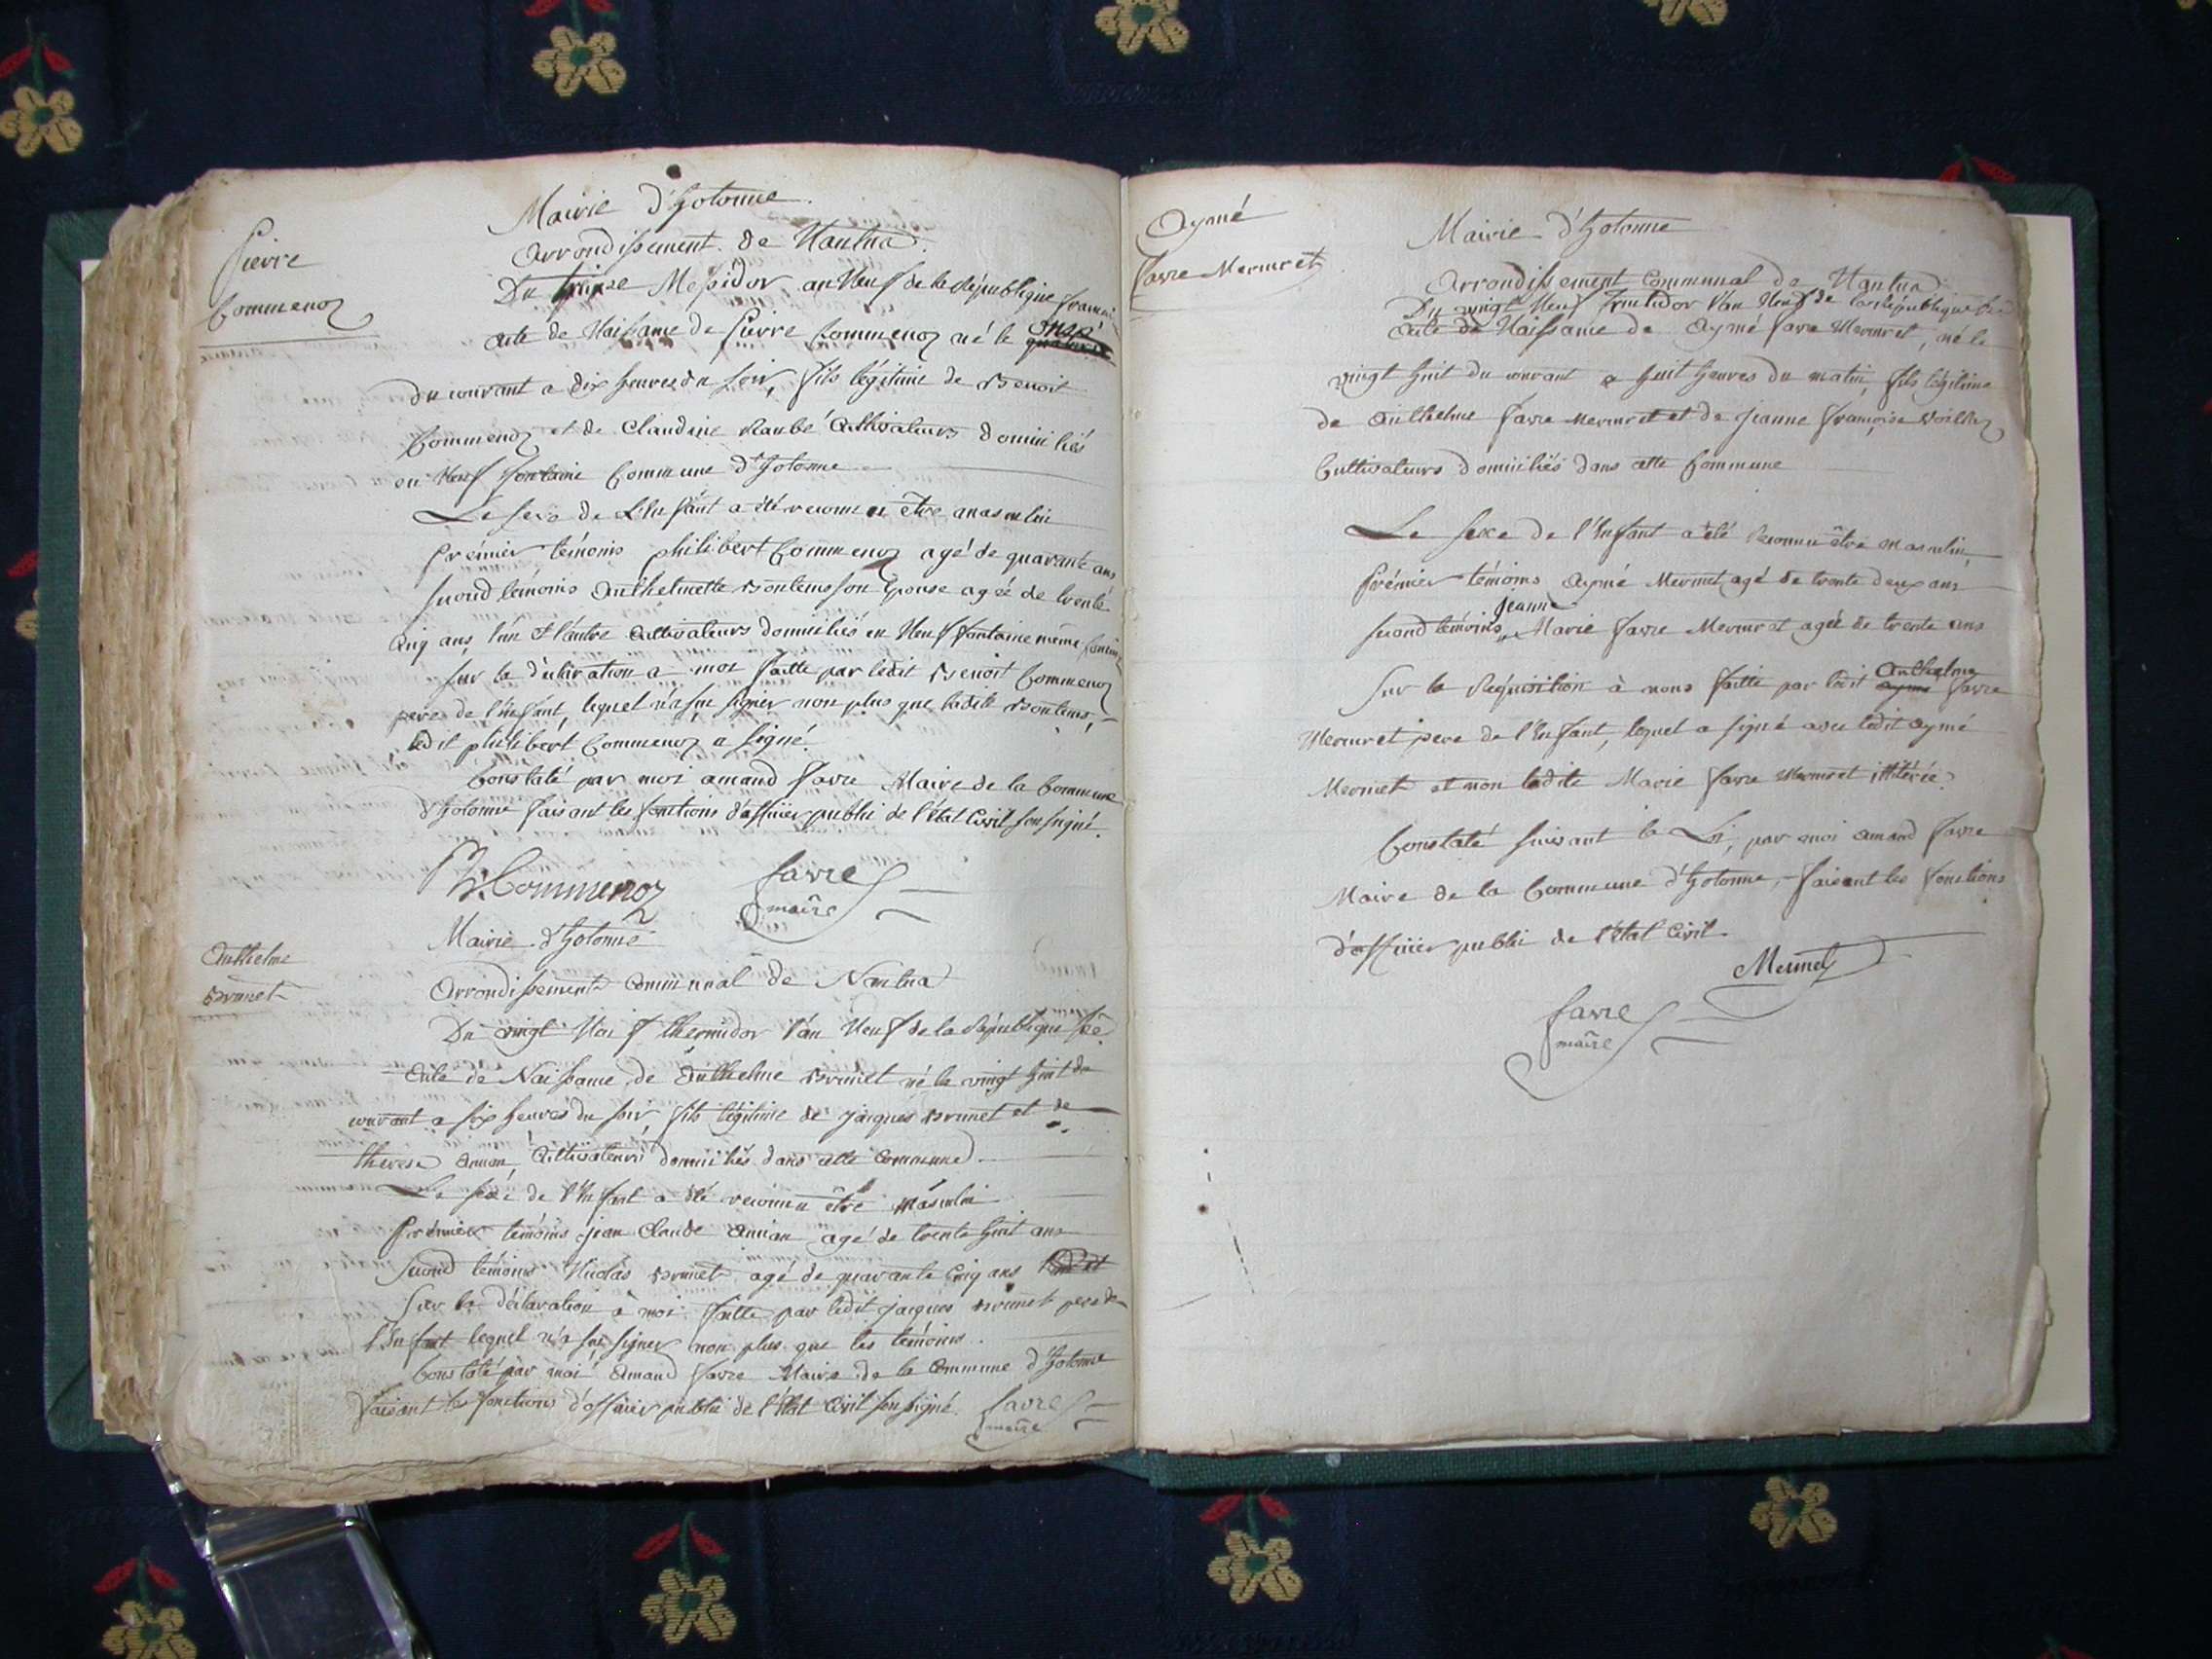 Pierre
Commenoz
Mairie d'hotonne
Arrondissement de Nantua
Du treize Messidor an Neuf de la République
Acte de Naissance de Pierre Commenoz né le onze
du courant a dix heures du soir, fils légitime de Benoit
Commenoz et de Claudine cultivateurs domiciliés
en Neuf fontaine Commune d'hotonne
Le sexe de L'Enfant a été reconnu être masculin
Prémier témoins philibert Commenoz agé de quarante ans
second témoins Anthelmette Bontems son Epouse agée de trente
cinq ans, l'un & l'autre cultivateurs domiciliés en Neuf fontaine même
sur la déclaration a moi faitte par ledit Benoit Commenoz
pere de l'enfant, lequel n'a su signer non plus que ladite Bontems,
ledit philibert Commenoz a signé.
Constaté par moi amand favre Maire de la Commune
d'hotonne faisant les fonctions d'officier public de l'état Civil soussigné.
Ph. Commenoz
favre
maire
Anthelme
Brunet
Mairie d'hotonne
Arrondissement communal de Nantua
Du vingt Neuf thermidor l'an Neuf de la République fse
Acte de Naissance de Anthelme Brunet né le vingt huit du
courant a six heures du soir, fils légitime de jacques Brunet et de
therese cultivateurs domiciliés dans cette Commune.
Le sexe de l'Enfant a été reconnu être masculin
Prémier témoins jean Claude agé de trente huit ans
second témoins Nicolas Brunet agé de quarante cinq ans
Sur la déclaration à moi faitte par ledit jacques Brunet pere de
l'Enfant lequel n'a su signer non plus que les témoins.
Constaté par moi Amand favre Maire de la Commune d'hotonne
faisant les fonctions d'officier public de l'état Civil soussigné.
favre
maire
Aymé
favre Mermet
Mairie d'hotonne
Arrondissement communal de Nantua
Du vingt Neuf fructidor l'an Neuf de la République
Acte de Naissance de Aymé favre Mermet, né le
vingt huit du courant a huit heures du matin, fils légitime
de Anthelme favre Mermet et de jeanne françoise
Cultivateurs domiciliés dans cette Commune
Le sexe de l'Enfant a été reconnu être masculin,
Prémier témoins Aymé Mermet, agé de trente deux ans
jeanne
second témoins, Marie favre Mermet agée de trente ans
Anthelme
Sur la Réquisition à nous faitte par ledit favre
Mermet pere de l'Enfant, lequel a signé avec ledit aymé
Mermet et non ladite Marie favre Mermet illitérée.
Constaté suivant la Loi, par moi amand favre
Maire de la Commune d'hotonne, faisant les fonctions
d'officier public de l'état Civil.
Mermet
favre
maire